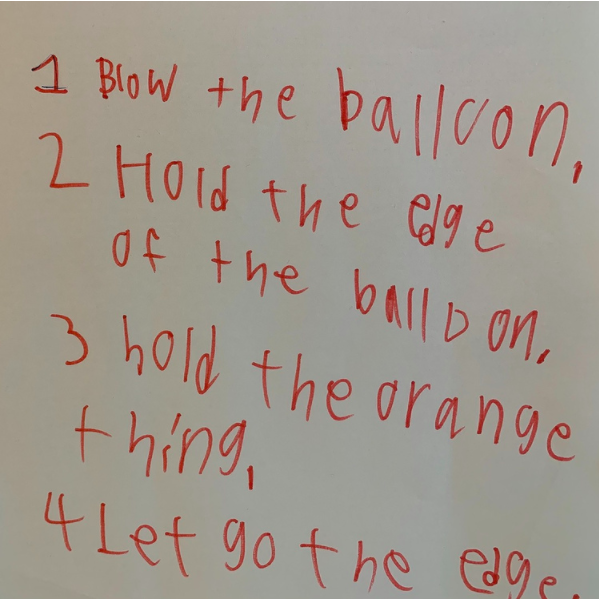 1 Blow the balloon,
2 Hold the edge
of the balloon.
3 hold the orange
thing,
4 Let go the edge.